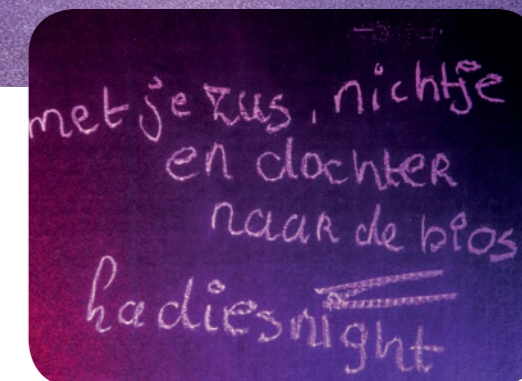 met je zus, nichtje
en dochter
naar de bios
Ladiesnight